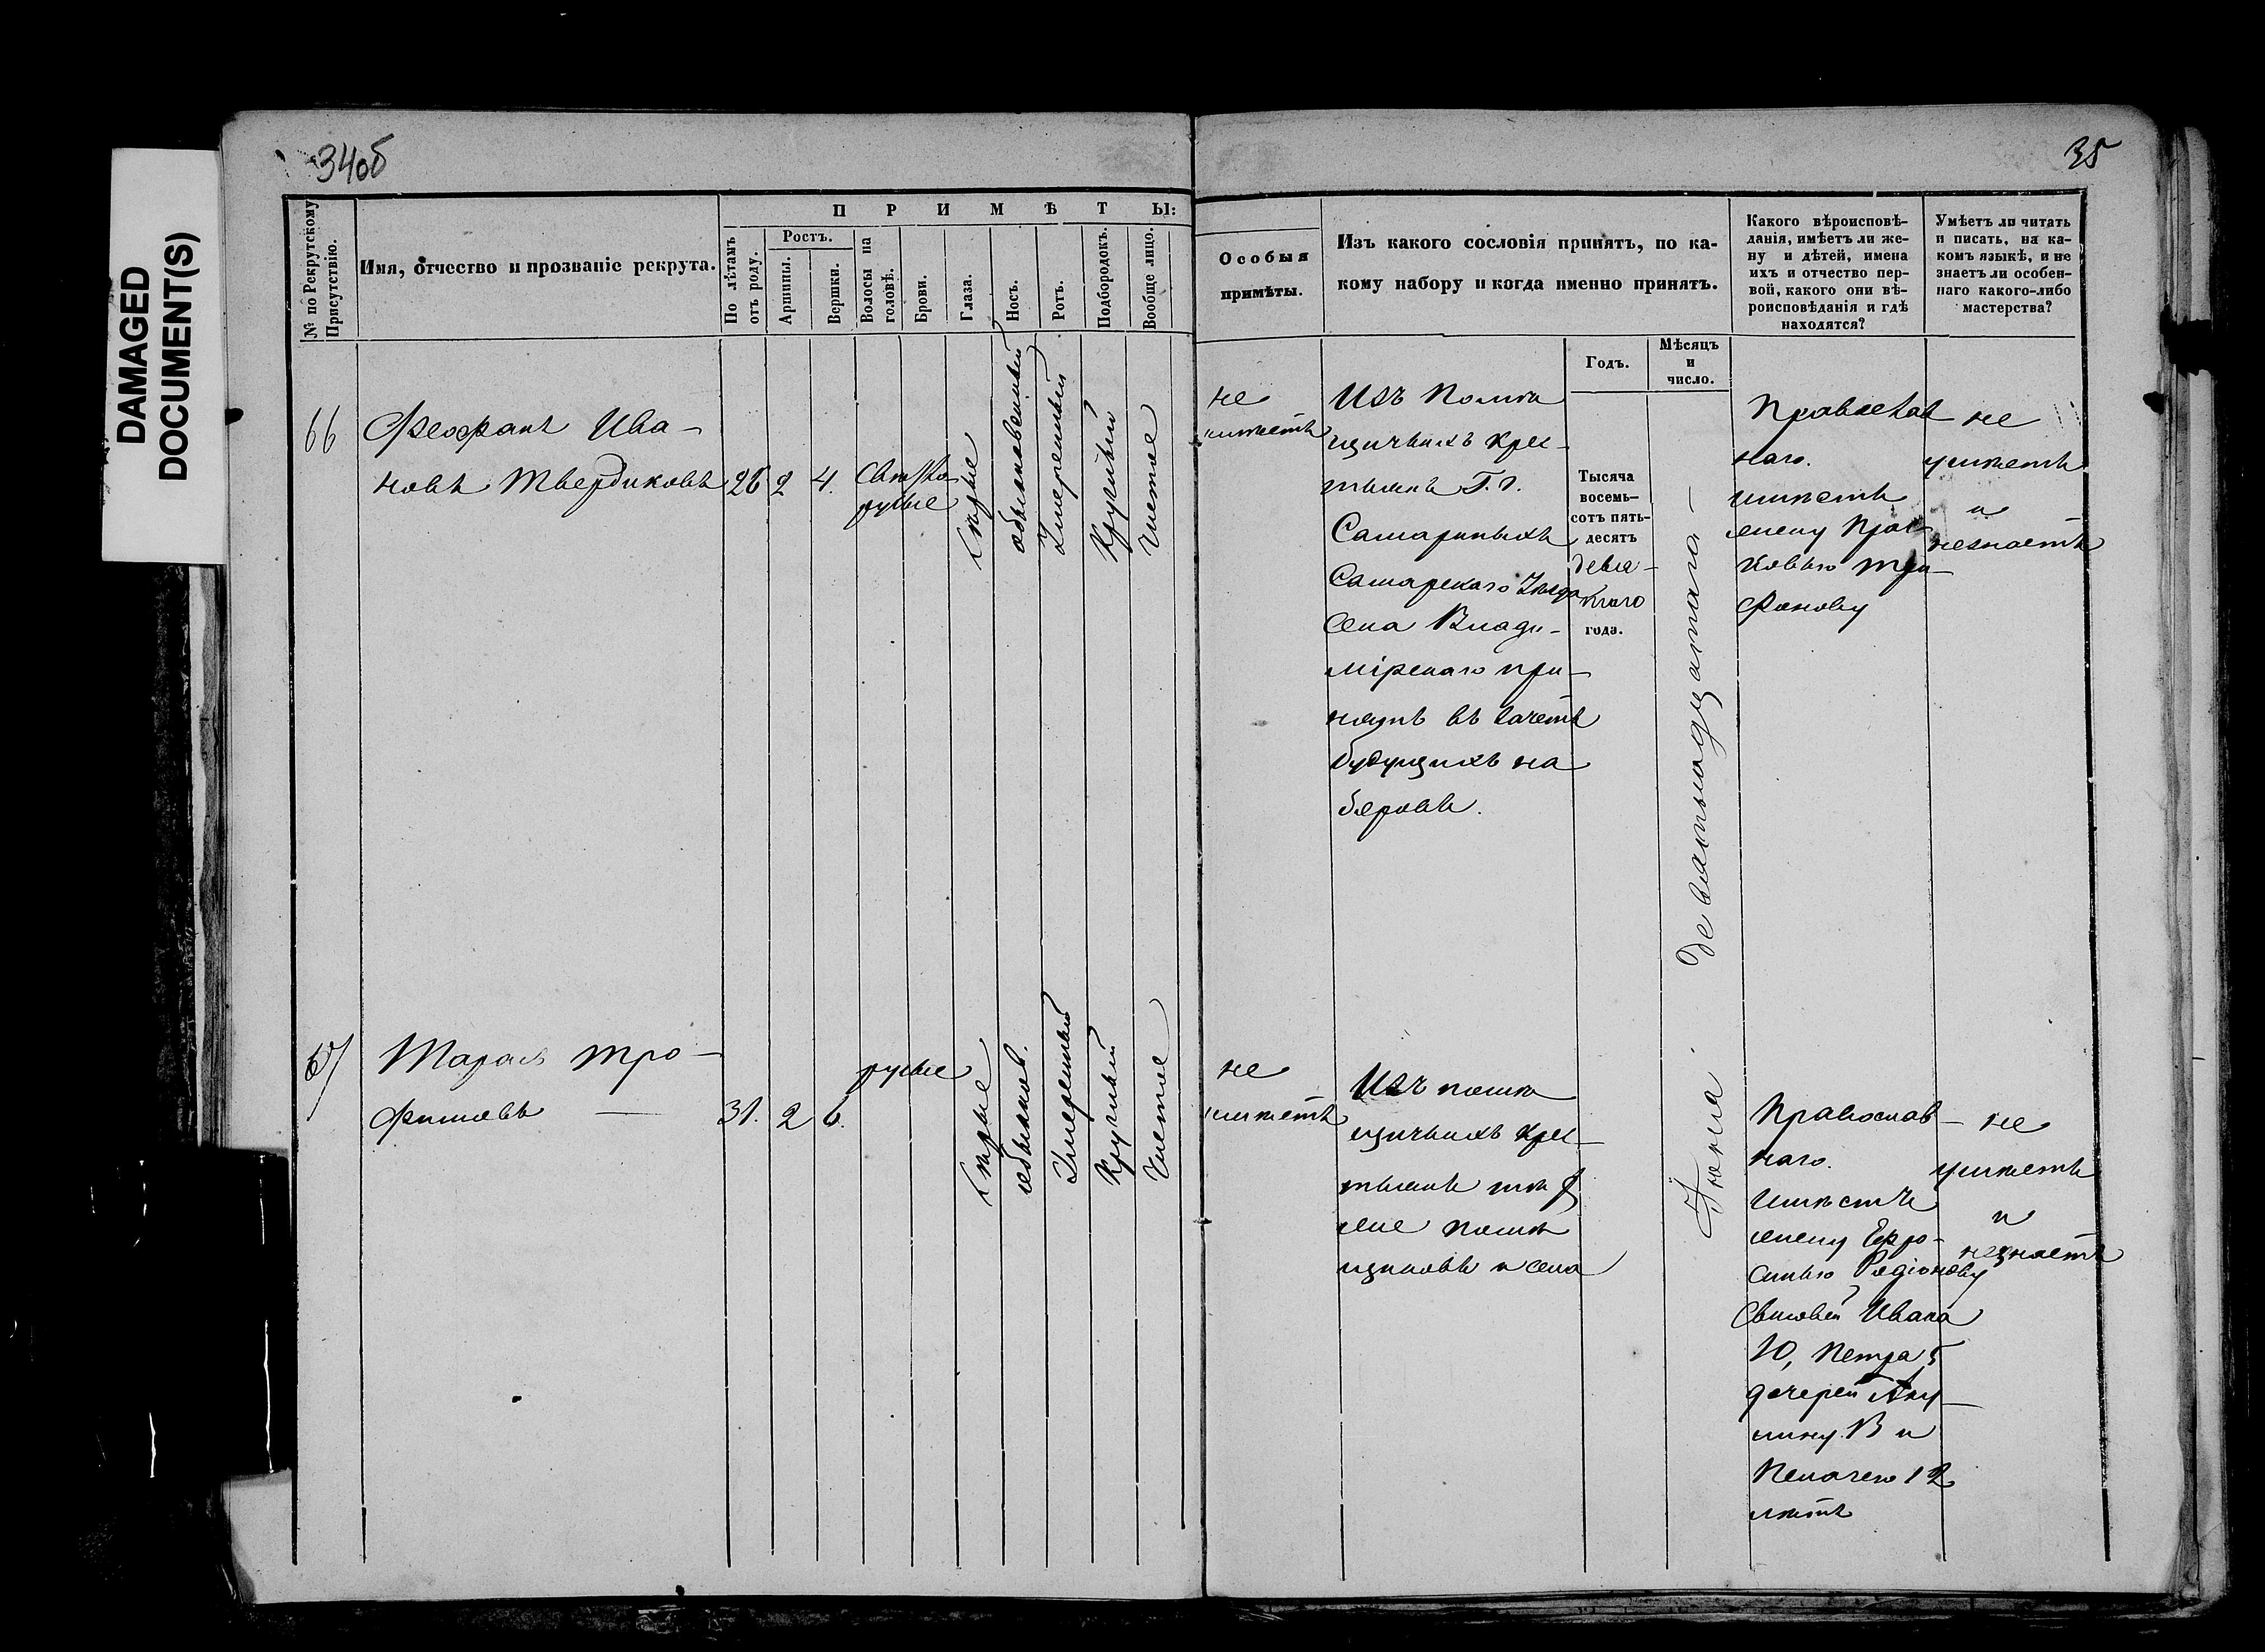 DAMAGED
DOCUMENT(S)
34об
35
№ по Рекрутскому Присутствію.
Имя, отчество и прозваніе рекрута.
ПРИМѢТЫ:
По лѣтамъ отъ роду.
Ростъ.
Аршины.
Вершки.
Волосы на головѣ.
Брови.
Глаза.
Носъ.
Ротъ.
Подбородокъ.
Вообще лицо.
Особыя
примѣты.
Изъ какого сословія принятъ, по ка-
кому набору и когда именно принятъ.
Годъ.
Мѣсяцъ
и
число.
Какого вѣроисповѣ-
данія, имѣетъ ли же-
ну и дѣтей, имена
ихъ и отчество пер-
вой, какого они вѣ-
роисповѣданія и гдѣ
находятся?
Умѣетъ ли читать
и писать, на ка-
комъ языкѣ, и не
знаетъ ли особен-
наго какого-либо
мастерства?
66
Феофанъ Ива-
новъ Твердиковъ
26
2
4.
Свѣтло
русые
Сѣрые
обыкновенный
Умеренный
Круглый
Чистое
не
имѣетъ
Изъ Помѣ
щичьихъ кре-
тьянъ Г.г.
Самариныхъ
Самарскаго Уезда
Села Влади-
мірскаго при-
нятъ въ зачетъ
будущихъ на
боровъ.
Тысяча
восемь-
сотъ пять-
десятъ
девя-
таго
года.
Іюня девятнадцатаго
Православ
наго.
имѣетъ
жену Прас-
ковью Три-
фонову
не
умѣетъ
и
незнаетъ
67
Тарасъ Тро-
фимовъ
31.
2
6.
русые
Сѣрые
обыкнов.
Умеренный
Круглый
Чистое
не
имѣетъ
Изъ помѣ
щичьихъ кре-
тьянъ тѣхъ
же помѣ
щиковъ и села
Православ-
наго.
имѣетъ
жену Ефро-
синью Родіонову
Сыновей Ивана
10, Петра 5
дочерей Аку-
лину 13 и
Пелагею 12
лѣтъ
не
умѣетъ
и
незнаетъ